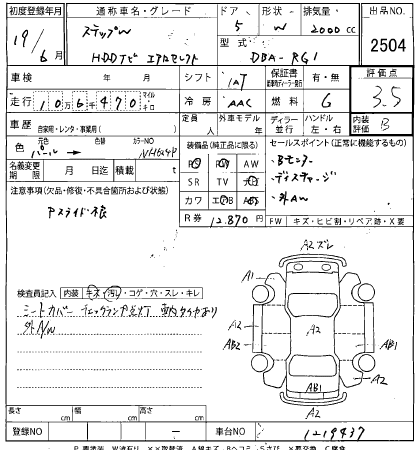 初度登録年月 通称車名・グレード ドア 形状 排気量 出品NO.
19/6月 ステップW 5 W 2000cc 2504
HDDナビ エアロセレクト 型式 DBA-RG1
車検 年 月 シフト IAT 保証書 有・無 評価点
走行 10万6千470 マイル キロ 冷房 AAC 燃料 G 3.5
車歴 自家用・レンタ・事業用( ) 定員 人 外車モデル 年 ディーラー 並行 ハンドル 左・右 内装評価 B
色 元色 パール → 色替 カラーNO NH624P
装備品(純正品に限る) セールスポイント(正常に機能するもの)
PS PW AW ・Bモニター
名義変更期限 月 日迄 積載 t SR TV ナビ ・ディスチャージ
カワ エアB ABS ・外AW
注意事項(欠品・修復・不具合箇所および状態) R券 12,870円 FW キズ・ヒビ割・リペア跡・X要
Pスライド不良
A2ズレ
検査員記入 内装 キズ・汚れ・コゲ・穴・スレ・キレ A1
シートカバー チェックランプ点灯 車内タイヤあり A2 A2
外AW AB2 AB1
AB1 A2
A2
長さ cm 幅 cm 高さ cm
登録NO ー 車台NO 1219437